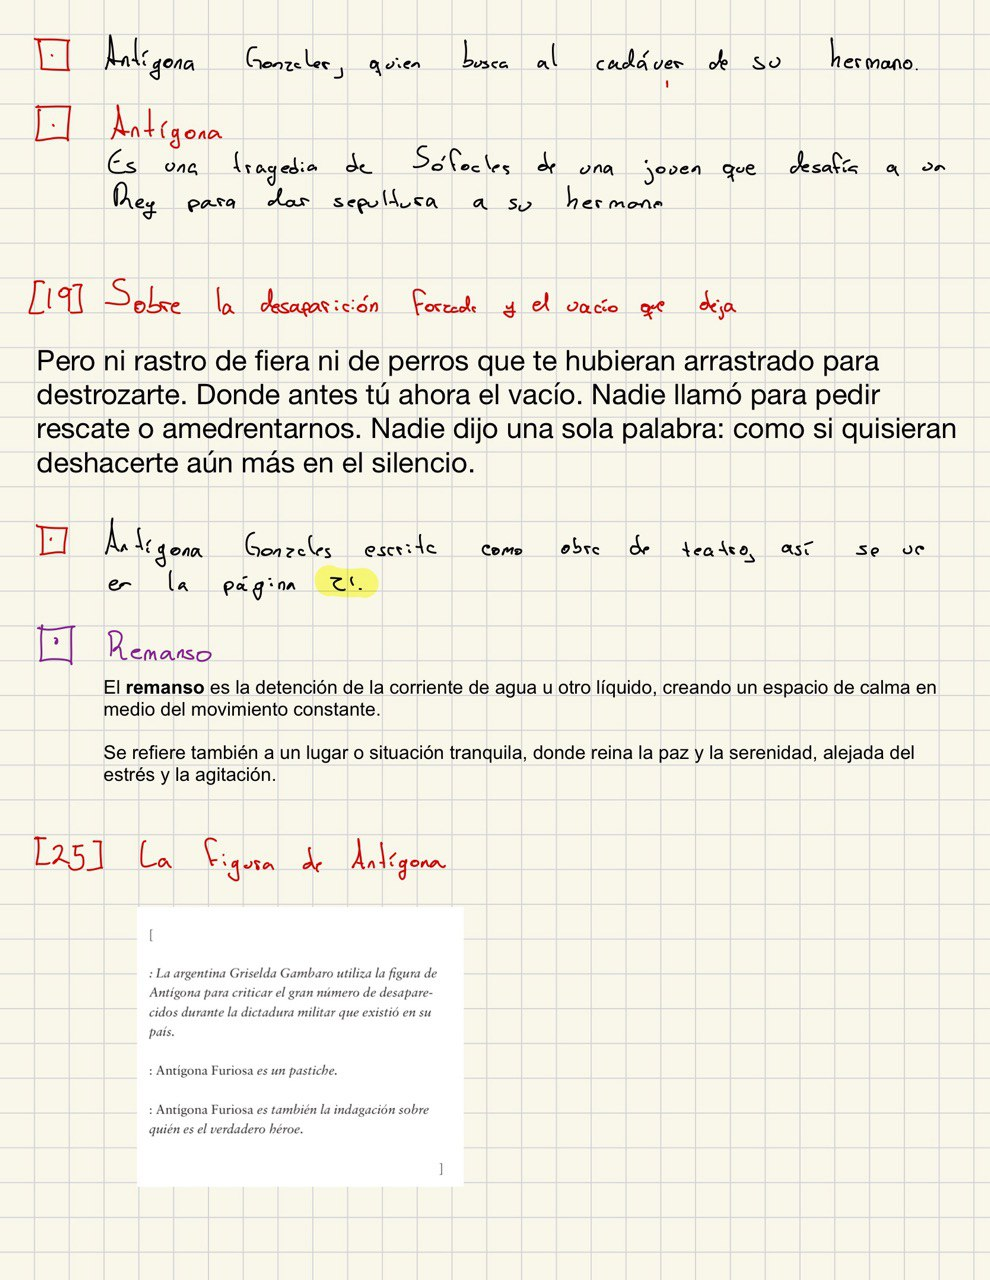 Antígona Gonzales, quien busca al cadáver de su hermano.
Antígona
Es una tragedia de Sófocles de una joven que desafía a un
Rey para dar sepultura a su hermano
[19] Sobre la desaparición forzada y el vacío que deja
Pero ni rastro de fiera ni de perros que te hubieran arrastrado para
destrozarte. Donde antes tú ahora el vacío. Nadie llamó para pedir
rescate o amedrentarnos. Nadie dijo una sola palabra: como si quisieran
deshacerte aún más en el silencio.
Antígona Gonzales escrita como obra de teatro, así se ve
en la página 21.
Remanso
El remanso es la detención de la corriente de agua u otro líquido, creando un espacio de calma en
medio del movimiento constante.
Se refiere también a un lugar o situación tranquila, donde reina la paz y la serenidad, alejada del
estrés y la agitación.
[25] La figura de Antígona
[
: La argentina Griselda Gambaro utiliza la figura de
Antígona para criticar el gran número de desapare-
cidos durante la dictadura militar que existió en su
país.
: Antígona Furiosa es un pastiche.
: Antígona Furiosa es también la indagación sobre
quién es el verdadero héroe.
]